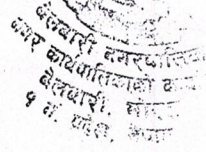 बेलबारी नगरपालिका
नगर कार्यपालिकाको
बेलबारी,
१ नं. प्रदेश, नेपाल